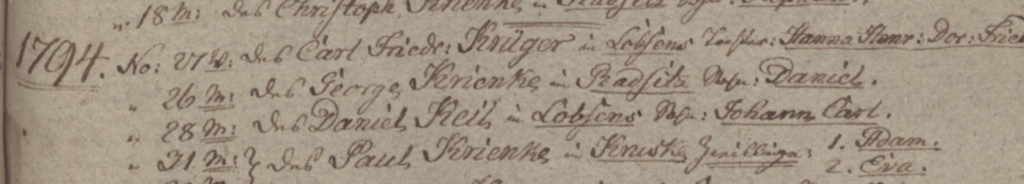 " 18 M: des Christoph Krienke in
1794. No: 27 W: des Carl Friedr: Krüger in Lobsens Tochter: Hanna Henr: Dor: Fried
" 26 M: des George Krienke in Radsitz Sohn: Daniel.
" 28 M: des Daniel Keil in Lobsens Sohn: Johann Carl.
" 31 M: } des Paul Krienke in Kruske Zwillinge: 1. Adam.
2. Eva.